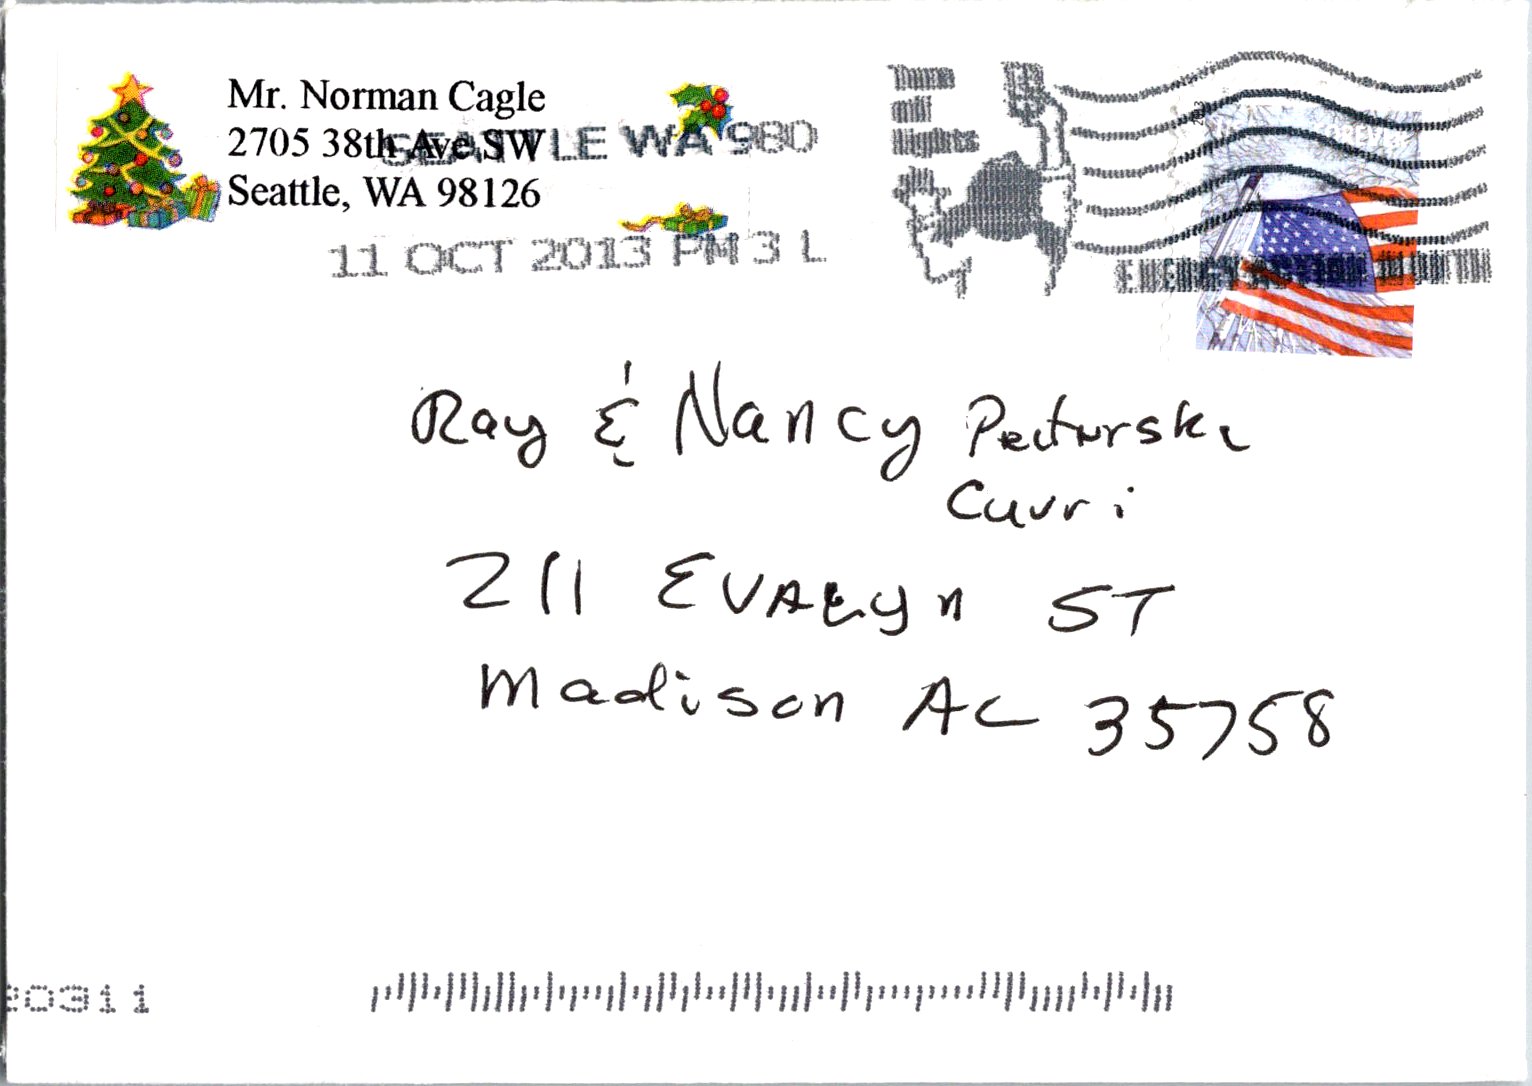 Mr. Norman Cagle
2705 38th Ave SW
Seattle, WA 98126
SEATTLE WA 980
11 OCT 2013 PM 3 L
Turn
off
lights
ENERGY ACTION MONTH
Ray & Nancy Peturski
Cuvri
211 EVALyn ST
Madison AL 35758
20311